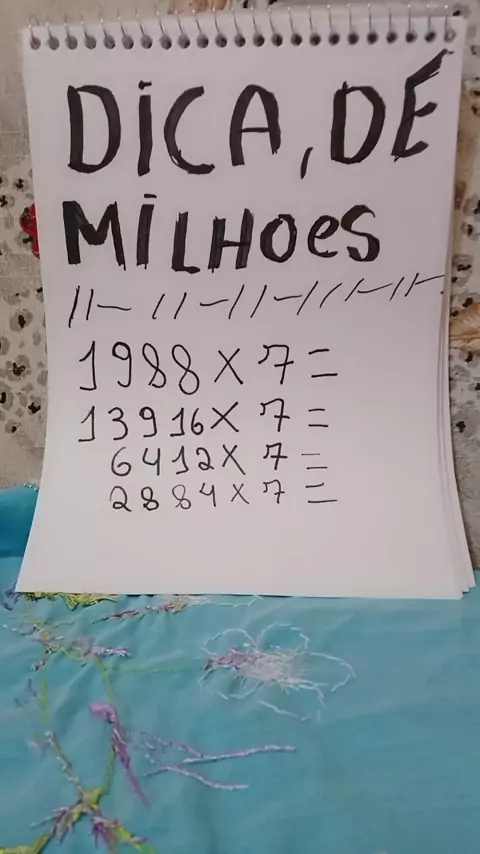 DiCA, DÉ
MiLHOeS
1988 X 7 =
13916 X 7 =
6412 X 7 =
2884 X 7 =